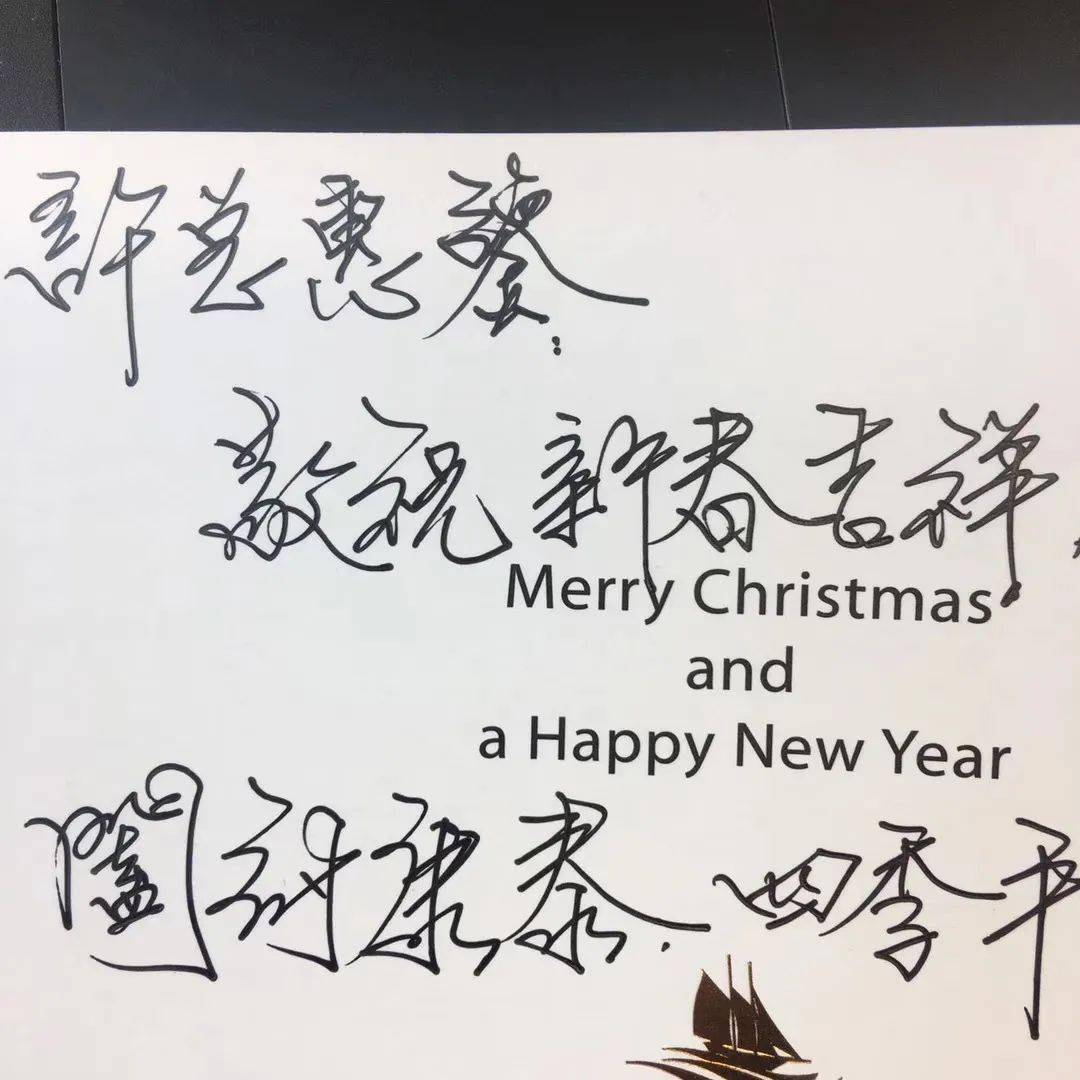 許总惠鑒：
敬祝新春吉祥
Merry Christmas
and
a Happy New Year
闔府康泰．四季平